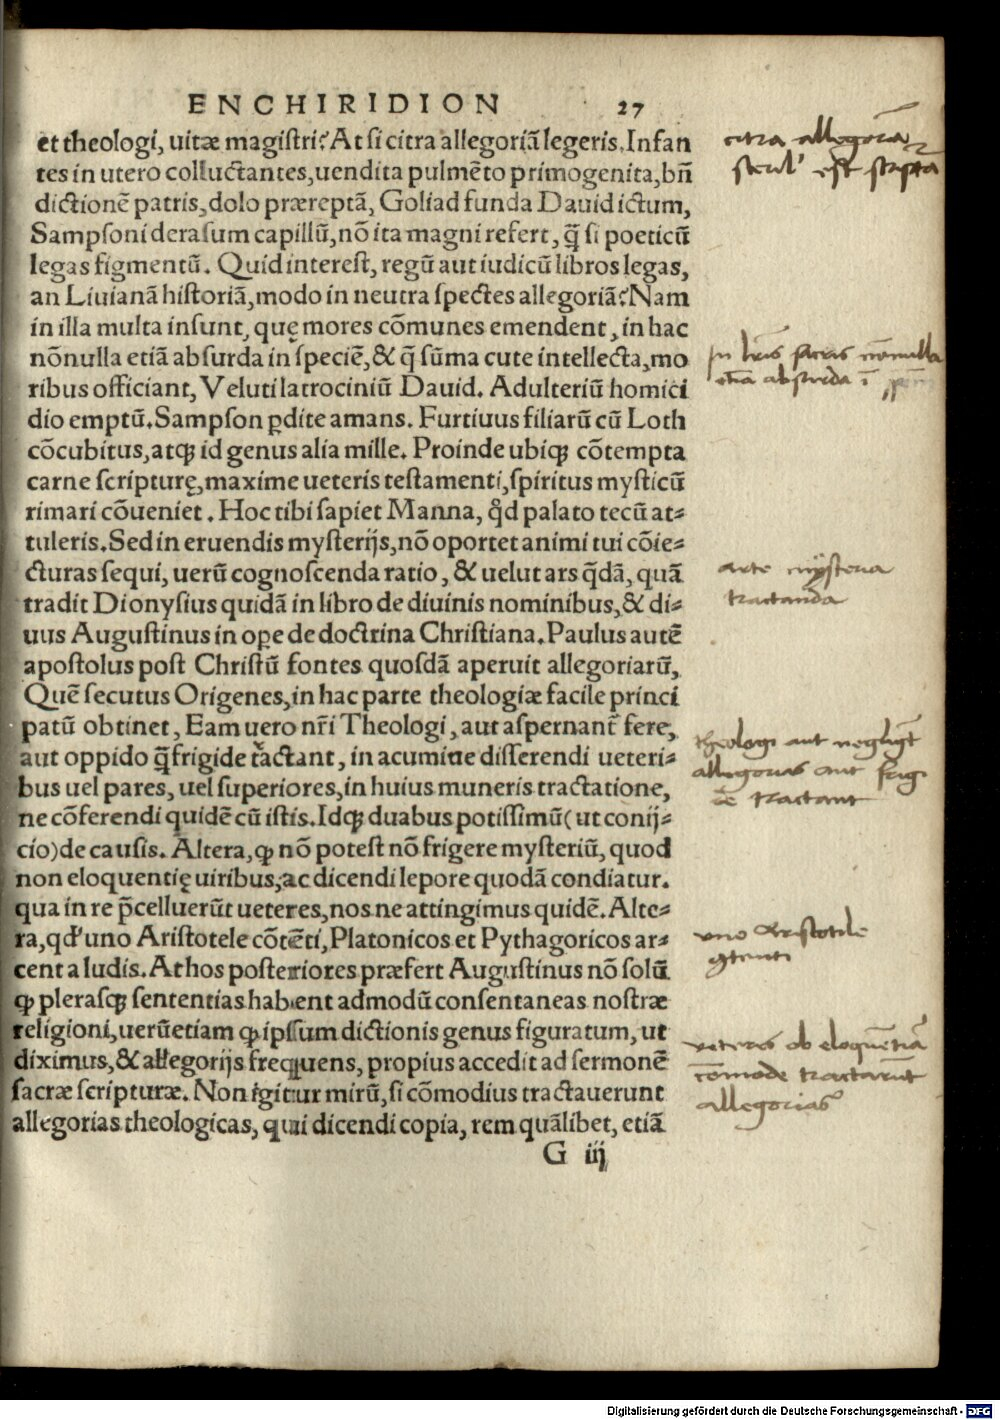 ENCHIRIDION 27
et theologi, uitæ magistri? At si citra allegoriā legeris. Infan
tes in utero colluctantes, uendita pulmēto primogenita, bn̄
dictionē patris, dolo præreptā, Goliad funda Dauid ictum,
Sampsoni derasum capillū, nō ita magni refert, q̄ si poeticū
legas figmentū. Quid interest, regū aut iudicū libros legas,
an Liuianā historiā, modo in neutra spectes allegoriā? Nam
in illa multa insunt, quę mores cōmunes emendent, in hac
nōnulla etiā absurda in speciē, & q̄ sūma cute intellecta, mo
ribus officiant, Veluti latrociniū Dauid. Adulteriū homici
dio emptū. Sampson ꝑdite amans. Furtiuus filiarū cū Loth
cōcubitus, atqꝫ id genus alia mille. Proinde ubiqꝫ cōtempta
carne scripturę, maxime ueteris testamenti, spiritus mysticū
rimari cōueniet. Hoc tibi sapiet Manna, qd̄ palato tecū at-
tuleris. Sed in eruendis mysterijs, nō oportet animi tui cōie-
cturas sequi, uerū cognoscenda ratio, & uelut ars q̄dā, quā
tradit Dionysius quidā in libro de diuinis nominibus, & di-
uus Augustinus in oꝑe de doctrina Christiana. Paulus autē
apostolus post Christū fontes quosdā aperuit allegoriarū,
Quē secutus Origenes, in hac parte theologiæ facile princi
patū obtinet, Eam uero nr̄i Theologi, aut aspernant̄ fere,
aut oppido q̄ frigide tractant, in acumine disserendi ueteri-
bus uel pares, uel superiores, in huius muneris tractatione,
ne cōferendi quidē cū istis. Idqꝫ duabus potissimū (ut conij-
cio) de causis. Altera, ꝙ nō potest nō frigere mysteriū, quod
non eloquentię uiribus, ac dicendi lepore quodā condiatur.
qua in re p̄celluerūt ueteres, nos ne attingimus quidē. Alte-
ra, qd' uno Aristotele cōtēti, Platonicos et Pythagoricos ar-
cent a ludis. At hos posteriores præfert Augustinus nō solū
ꝙ plerasqꝫ sententias habent admodū consentaneas nostræ
religioni, uerū etiam ꝙ ipsum dictionis genus figuratum, ut
diximus, & allegorijs frequens, propius accedit ad sermonē
sacræ scripturæ. Non igitur mirū, si cōmodius tractauerunt
allegorias theologicas, qui dicendi copia, rem quālibet, etiā
G iij
citra allegoriā
steril' est scriptā
In lr̄is sacris nōnulla
etiā absurda ī
arte mysteria
tractanda
theologi aut negligūt
allegorias aut frigi
de tractant
uno Aristotile
ꝯtenti
ueteres ob eloquētiā
cōmode tractarūt
allegorias
Digitalisierung gefördert durch die Deutsche Forschungsgemeinschaft - DFG